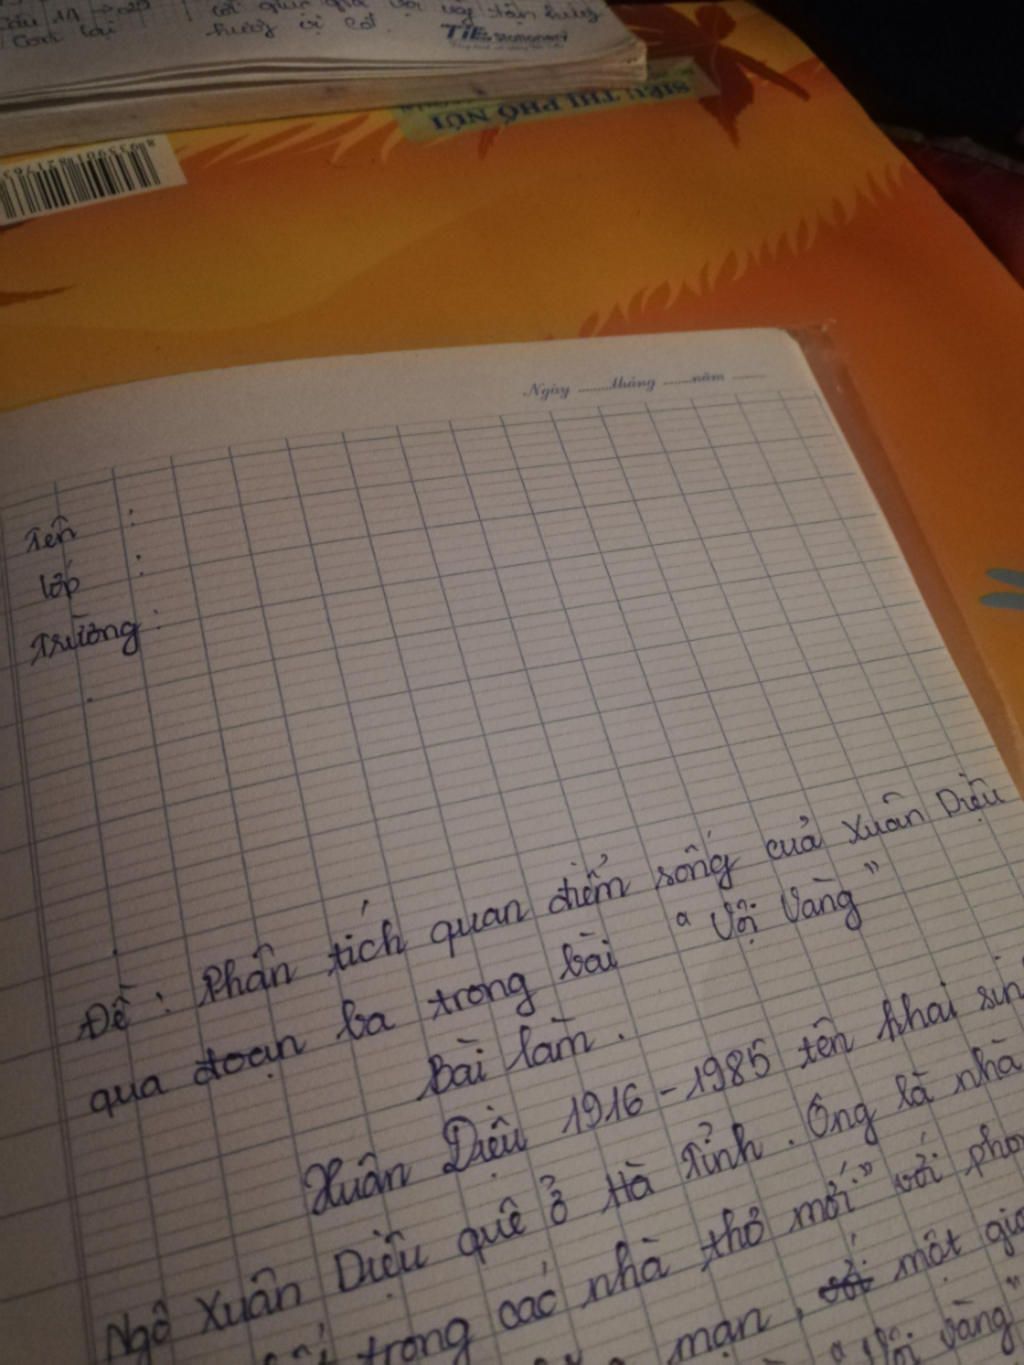 TIE Stationery
SIÊU THỊ PHỐ NÚI
Ngày ........tháng .......năm ........
Tên :
lớp :
Trường :
Đề : Phân tích quan điểm sống của Xuân Diệu
qua đoạn ba trong bài " Vội Vàng "
Bài làm .
Xuân Diệu 1916 - 1985 tên khai
Ngô Xuân Diệu quê ở Hà Tỉnh . Ông là nhà
trong các nhà thơ mới" với
mạn , một
"Vội Vàng"